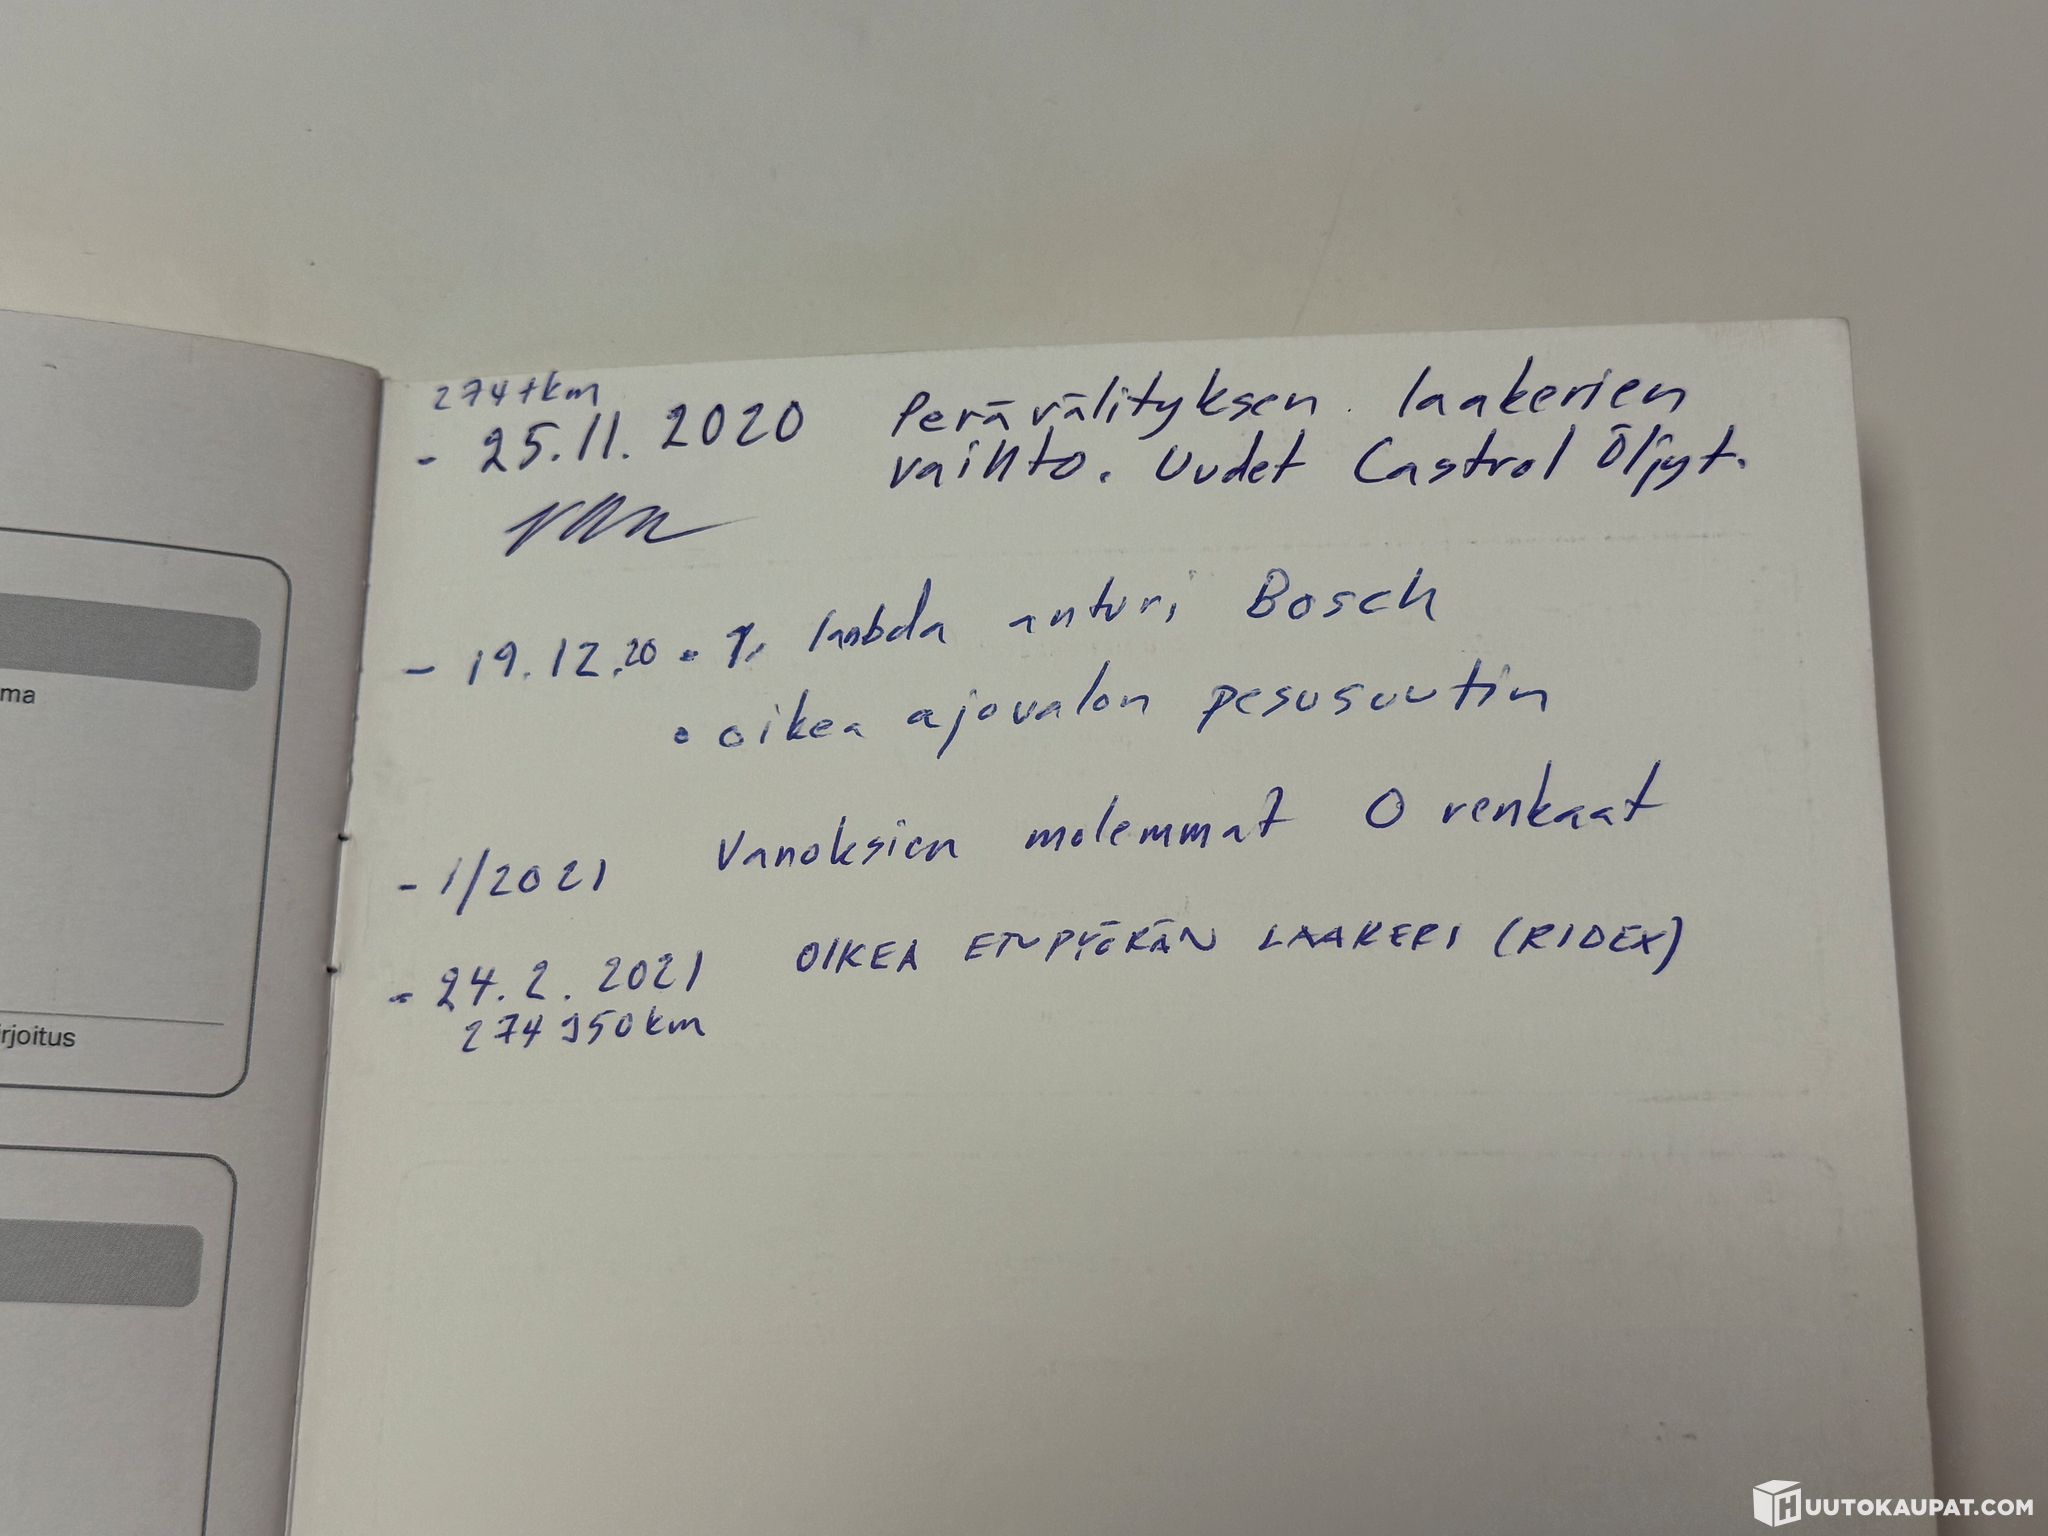 274tkm
- 25.11.2020 Perävälityksen laakerien
vaihto. Uudet Castrol Öljyt.
- 19.12.20 • 1. lambda anturi Bosch
• oikea ajovalon pesusuutin
- 1/2021 Vanoksien molemmat O renkaat
- 24.2.2021 OIKEA ETUPYÖRÄN LAAKERI (RIDEX)
274 950km
ma
rjoitus
HUUTOKAUPAT.COM